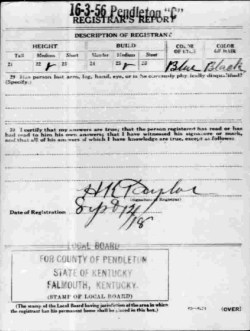 16-3-56 Pendleton
REGISTRAR'S REPORT
DESCRIPTION OF REGISTRANT
HEIGHT BUILD COLOR OF EYES COLOR OF HAIR
Tall Medium Short Slender Medium Stout
21 22 23 24 25 26 27 Blue 28 Black
29 Has person lost arm, leg, hand, eye, or is he obviously physically disqualified? (Specify.)
30 I certify that my answers are true; that the person registered has read or has had read to him his own answers; that I have witnessed his signature or mark, and that all of his answers of which I have knowledge are true, except as follows:
H K Taylor
(Signature of Registrar)
Date of Registration Sept 12/18
LOCAL BOARD
FOR COUNTY OF PENDLETON
STATE OF KENTUCKY
FALMOUTH, KENTUCKY.
(STAMP OF LOCAL BOARD)
(The stamp of the Local Board having jurisdiction of the area in which the registrant has his permanent home shall be placed in this box.)
(OVER)